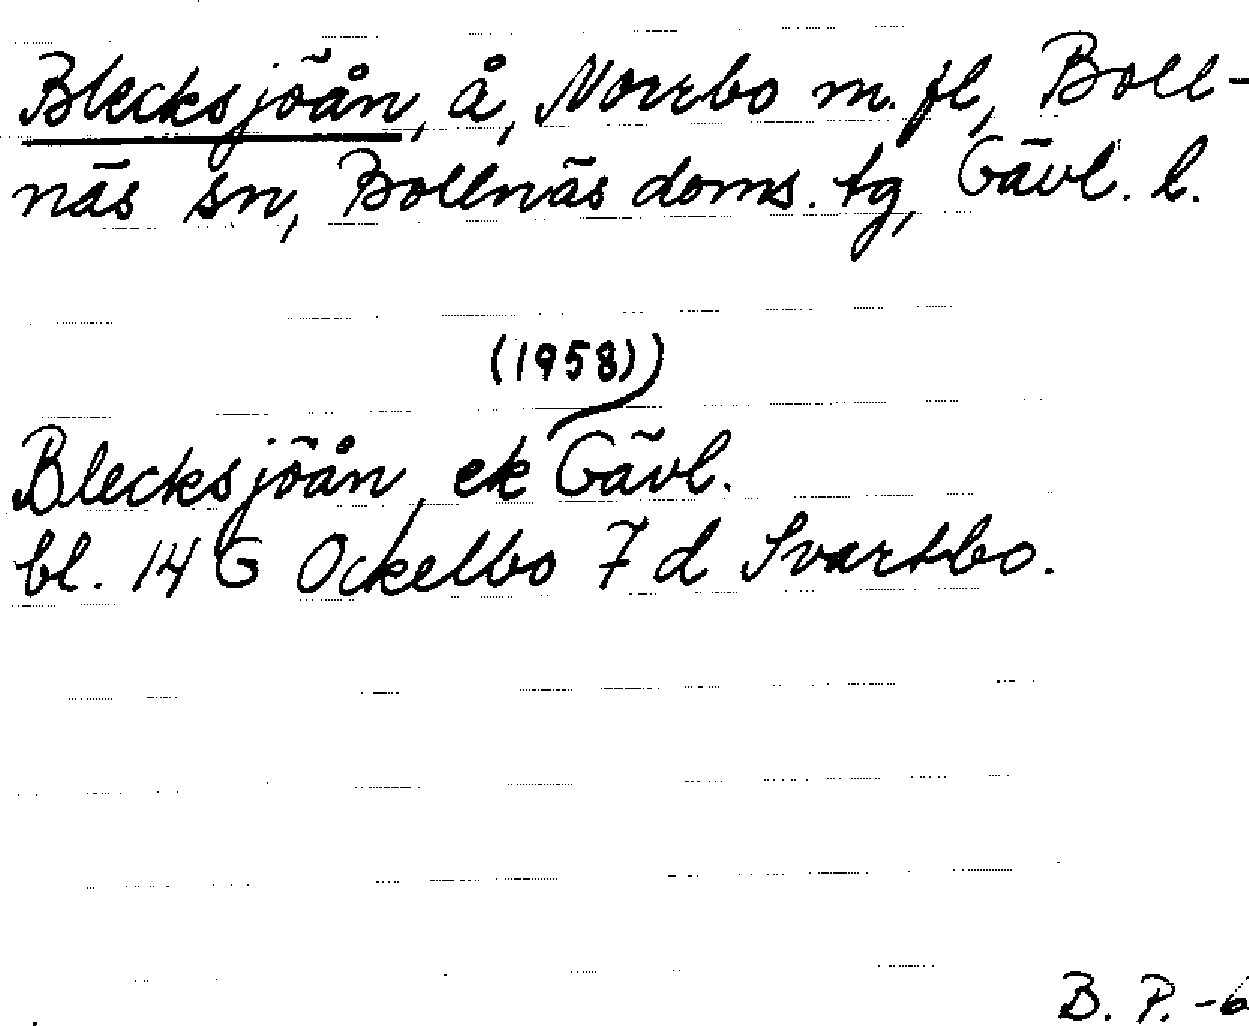 Blecksjöån, å, Norrbo m. fl, Boll-
näs sn, Bollnäs doms. tg, Gävl. l.
(1958))
Blecksjöån, ek Gävl.
bl. 14 G Ockelbo 7 d Svartbo.
B. P. -6